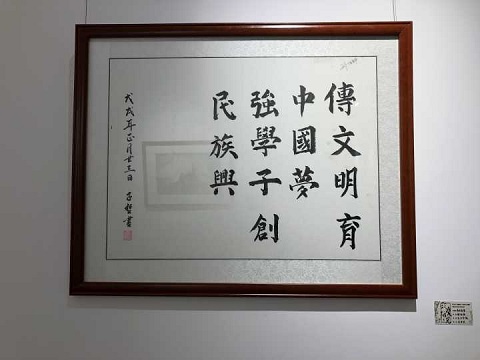 傳文明育
中國夢
強學子創
民族興
戊戌年正月廿三日